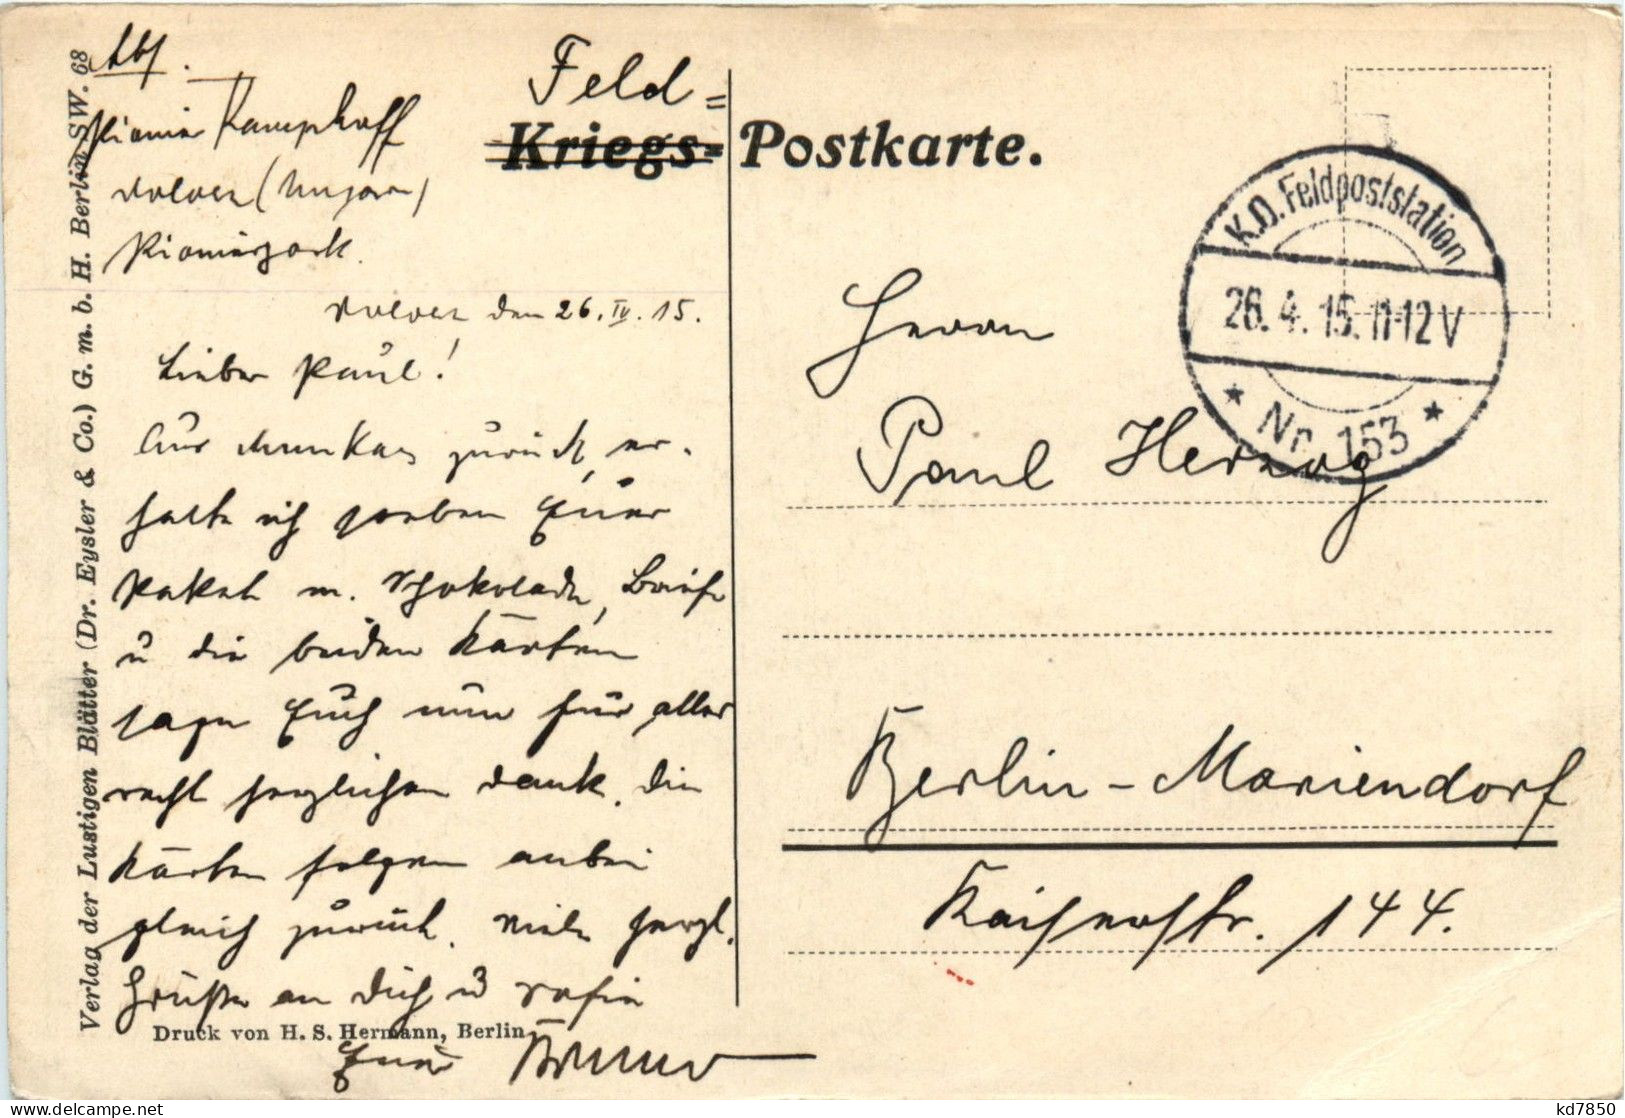 Abs.
Pionier Kamphoff
Volocz (Ungarn)
Pionierpark.
Volocz den 26. IV. 15.
Lieber Paul!
Aus Munkacs zurück, er-
halte ich soeben Euer
Paket m. Schokolade, Briefe
u die beiden Karten
sage Euch nun für alles
recht herzlichen Dank. Die
Karten folgen anbei
gleich zurück. Viele herzl.
Grüße an Dich u Sofie
Euer Bruno
Feld=
Kriegs=Postkarte.
K.D. Feldpoststation
26.4.15. 11-12 V
* Nr. 153 *
Herrn
Paul Herzog
Berlin-Mariendorf
Kaiserstr. 144.
Verlag der Lustigen Blätter (Dr. Eysler & Co.) G. m. b. H. Berlin SW. 68
Druck von H. S. Hermann, Berlin
delcampe.net
kd7850